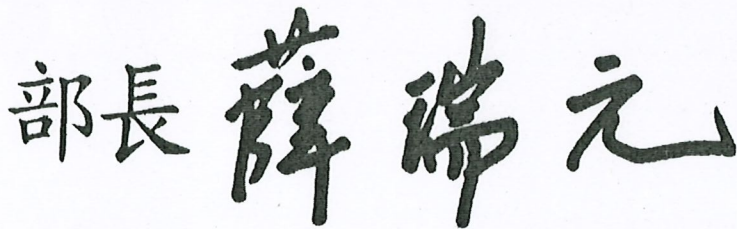 部長 薛瑞元